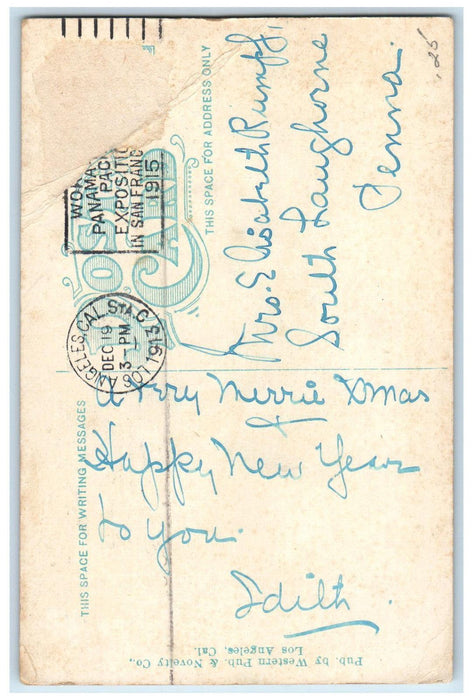 THIS SPACE FOR WRITING MESSAGES
POST CARD
THIS SPACE FOR ADDRESS ONLY
LOS ANGELES, CAL. STA. C
DEC 19
3-PM
1913
WOR
PANAMA
PACI
EXPOSITIO
IN SAN FRANC
1915
A Very Merrie Xmas
+
Happy New Year
to you.
Edith.
Mrs. Elizabeth Rumpf,
South Langhorne
Penna.
.25
Pub. by Western Pub. & Novelty Co.,
Los Angeles, Cal.